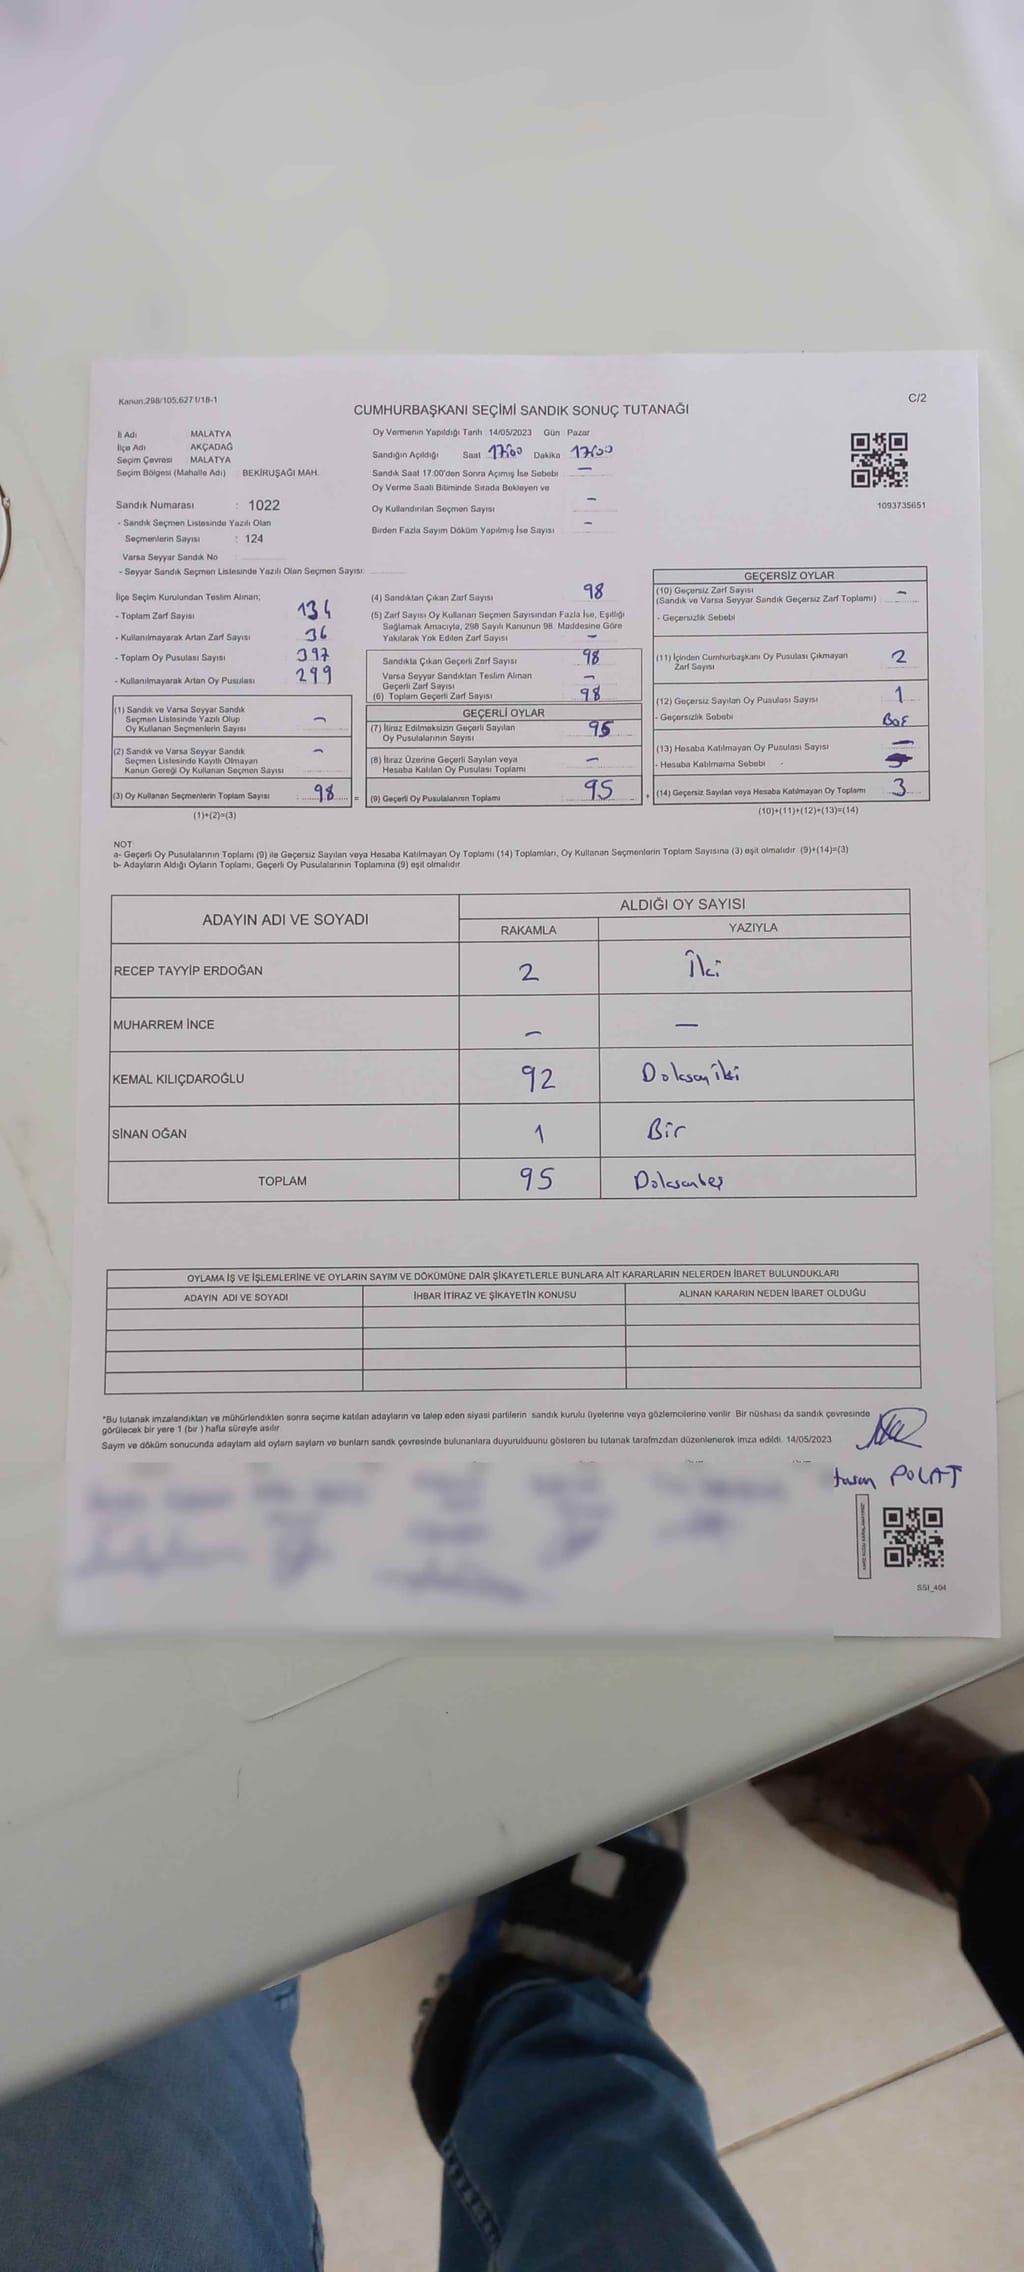 Kanun:298/105,6271/18-1
C/2
CUMHURBAŞKANI SEÇİMİ SANDIK SONUÇ TUTANAĞI
İli Adı MALATYA
İlçe Adı AKÇADAĞ
Seçim Çevresi MALATYA
Seçim Bölgesi (Mahalle Adı) BEKİRUŞAĞI MAH.
Sandık Numarası : 1022
- Sandık Seçmen Listesinde Yazılı Olan
Seçmenlerin Sayısı : 124
Varsa Seyyar Sandık No
- Seyyar Sandık Seçmen Listesinde Yazılı Olan Seçmen Sayısı:
Oy Vermenin Yapıldığı Tarih : 14/05/2023 Gün : Pazar
Sandığın Açıldığı Saat 17:00 Dakika 17:00
Sandık Saat 17:00'den Sonra Açımış İse Sebebi –
Oy Verme Saati Bitiminde Sırada Bekleyen ve
Oy Kullandırılan Seçmen Sayısı –
Birden Fazla Sayım Döküm Yapılmış İse Sayısı –
1093735651
İlçe Seçim Kurulundan Teslim Alınan;
- Toplam Zarf Sayısı 134
- Kullanılmayarak Artan Zarf Sayısı 36
- Toplam Oy Pusulası Sayısı 397
- Kullanılmayarak Artan Oy Pusulası 299
(1) Sandık ve Varsa Seyyar Sandık
Seçmen Listesinde Yazılı Olup
Oy Kullanan Seçmenlerin Sayısı –
(2) Sandık ve Varsa Seyyar Sandık
Seçmen Listesinde Kayıtlı Olmayan
Kanun Gereği Oy Kullanan Seçmen Sayısı –
(3) Oy Kullanan Seçmenlerin Toplam Sayısı 98 =
(1)+(2)=(3)
(4) Sandıktan Çıkan Zarf Sayısı 98
(5) Zarf Sayısı Oy Kullanan Seçmen Sayısından Fazla İse, Eşitliği
Sağlamak Amacıyla, 298 Sayılı Kanunun 98. Maddesine Göre
Yakılarak Yok Edilen Zarf Sayısı –
Sandıkta Çıkan Geçerli Zarf Sayısı 98
Varsa Seyyar Sandıktan Teslim Alınan
Geçerli Zarf Sayısı –
(6) Toplam Geçerli Zarf Sayısı 98
GEÇERLİ OYLAR
(7) İtiraz Edilmeksizin Geçerli Sayılan
Oy Pusulalarının Sayısı 95
(8) İtiraz Üzerine Geçerli Sayılan veya
Hesaba Katılan Oy Pusulası Toplamı –
(9) Geçerli Oy Pusulalarının Toplamı 95 +
GEÇERSİZ OYLAR
(10) Geçersiz Zarf Sayısı –
(Sandık ve Varsa Seyyar Sandık Geçersiz Zarf Toplamı)
- Geçersizlik Sebebi
(11) İçinden Cumhurbaşkanı Oy Pusulası Çıkmayan
Zarf Sayısı 2
(12) Geçersiz Sayılan Oy Pusulası Sayısı 1
- Geçersizlik Sebebi
(13) Hesaba Katılmayan Oy Pusulası Sayısı –
- Hesaba Katılmama Sebebi
(14) Geçersiz Sayılan veya Hesaba Katılmayan Oy Toplamı 3
(10)+(11)+(12)+(13)=(14)
NOT
a- Geçerli Oy Pusulalarının Toplamı (9) ile Geçersiz Sayılan veya Hesaba Katılmayan Oy Toplamı (14) Toplamları, Oy Kullanan Seçmenlerin Toplam Sayısına (3) eşit olmalıdır (9)+(14)=(3)
b- Adayların Aldığı Oyların Toplamı, Geçerli Oy Pusulalarının Toplamına (9) eşit olmalıdır
ADAYIN ADI VE SOYADI ALDIĞI OY SAYISI
RAKAMLA YAZIYLA
RECEP TAYYİP ERDOĞAN 2 İki
MUHARREM İNCE – –
KEMAL KILIÇDAROĞLU 92 Doksan iki
SİNAN OĞAN 1 Bir
TOPLAM 95 Doksanbeş
OYLAMA İŞ VE İŞLEMLERİNE VE OYLARIN SAYIM VE DÖKÜMÜNE DAİR ŞİKAYETLERLE BUNLARA AİT KARARLARIN NELERDEN İBARET BULUNDUKLARI
ADAYIN ADI VE SOYADI İHBAR İTİRAZ VE ŞİKAYETİN KONUSU ALINAN KARARIN NEDEN İBARET OLDUĞU
*Bu tutanak imzalandıktan ve mühürlendikten sonra seçime katılan adayların ve talep eden siyasi partilerin sandık kurulu üyelerine veya gözlemcilerine verilir. Bir nüshası da sandık çevresinde
görülecek bir yere 1 (bir ) hafta süreyle asılır
Sayım ve döküm sonucunda adayların ald oyların saylam ve bunların sandk çevresinde bulunanlara duyurulduunu gösteren bu tutanak tarafmzdan düzenlenerek imza edildi. 14/05/2023
POLAT
SSI_404